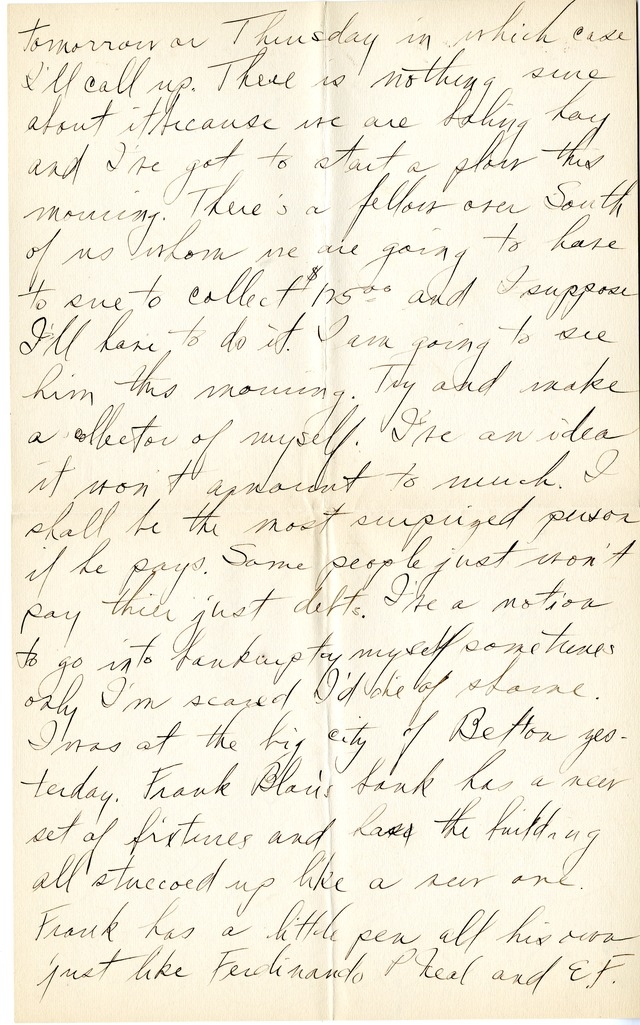 tomorrow or Thursday in which case
I'll call up. There is nothing sure
about it because we are baling hay
and I've got to start a plow this
morning. There's a fellow over South
of us whom we are going to have
to sue to collect $125⁰⁰ and I suppose
I'll have to do it. I am going to see
him this morning. Try and make
a collector of myself. I've an idea
it won't amount to much. I
shall be the most surprized person
if he pays. Some people just won't
pay thier just debts. I've a notion
to go into bankruptcy myself sometimes
only I'm scared I'd die of shame.
I was at the big city of Belton yes-
terday. Frank Blair's bank has a new
set of fixtures and has the building
all stuccoed up like a new one.
Frank has a little pen all his own
just like Ferdinando P Neal and E.F.